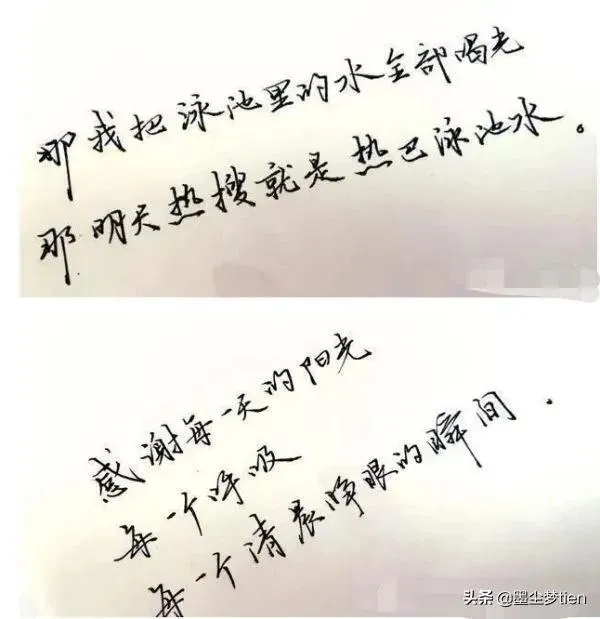 那我把泳池里的水全部喝光
那明天热搜就是热巴泳池水。
感谢每一天的阳光
每一个呼吸
每一个清晨睁眼的瞬间.
头条 @墨尘梦tien